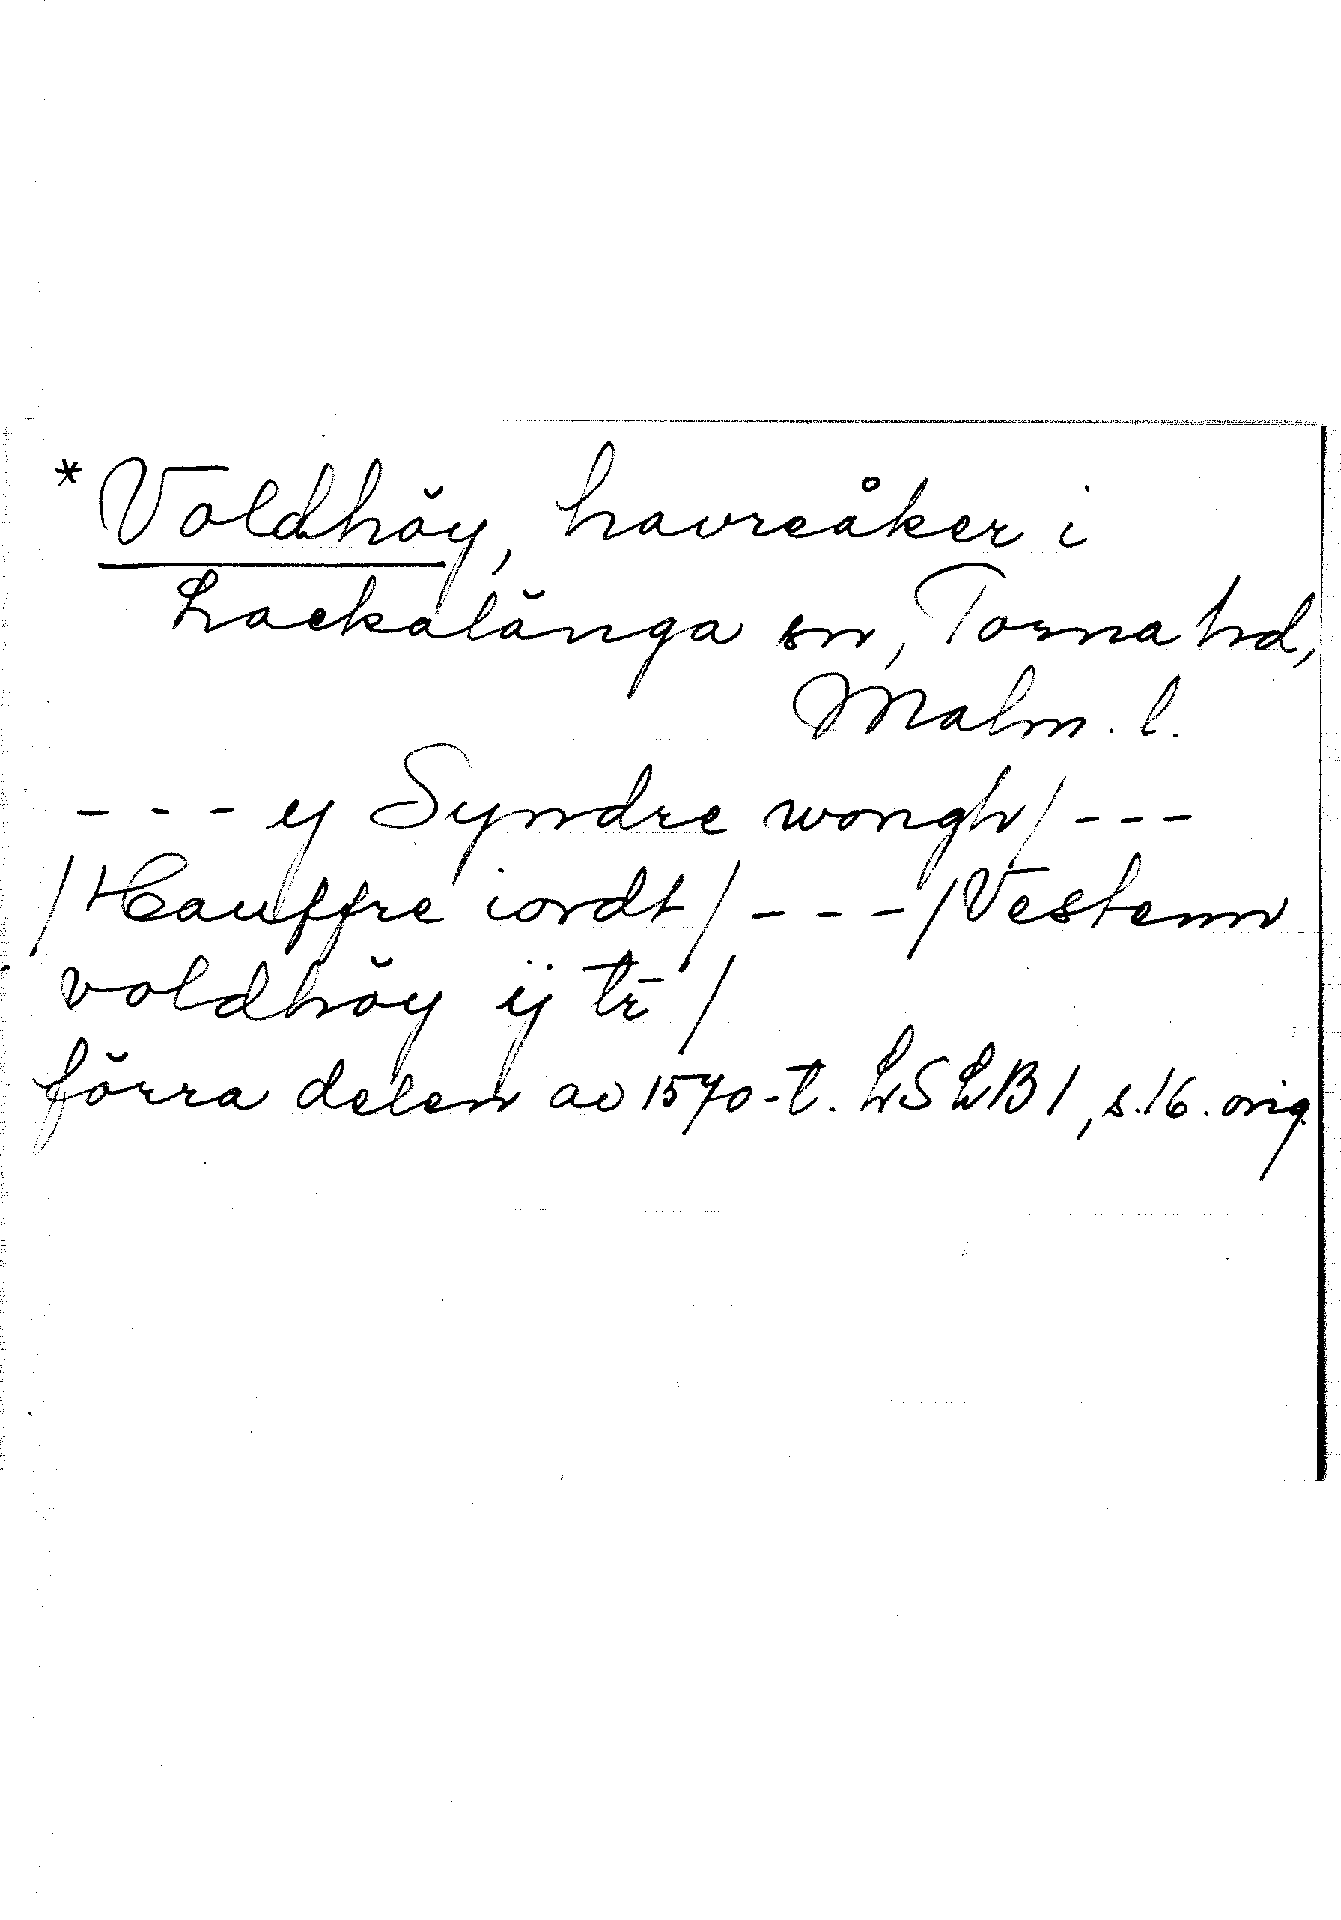 *Voldhöy, havreåker i
Lackalänga sn, Torna hd,
Malm. l.
--- ij Syndre wongh/ ---
/Hauffre iordt/ --- /Vestenn
voldhöy ij tr̄/
förra delen av 1570-t. LSLB1, s.16. orig.